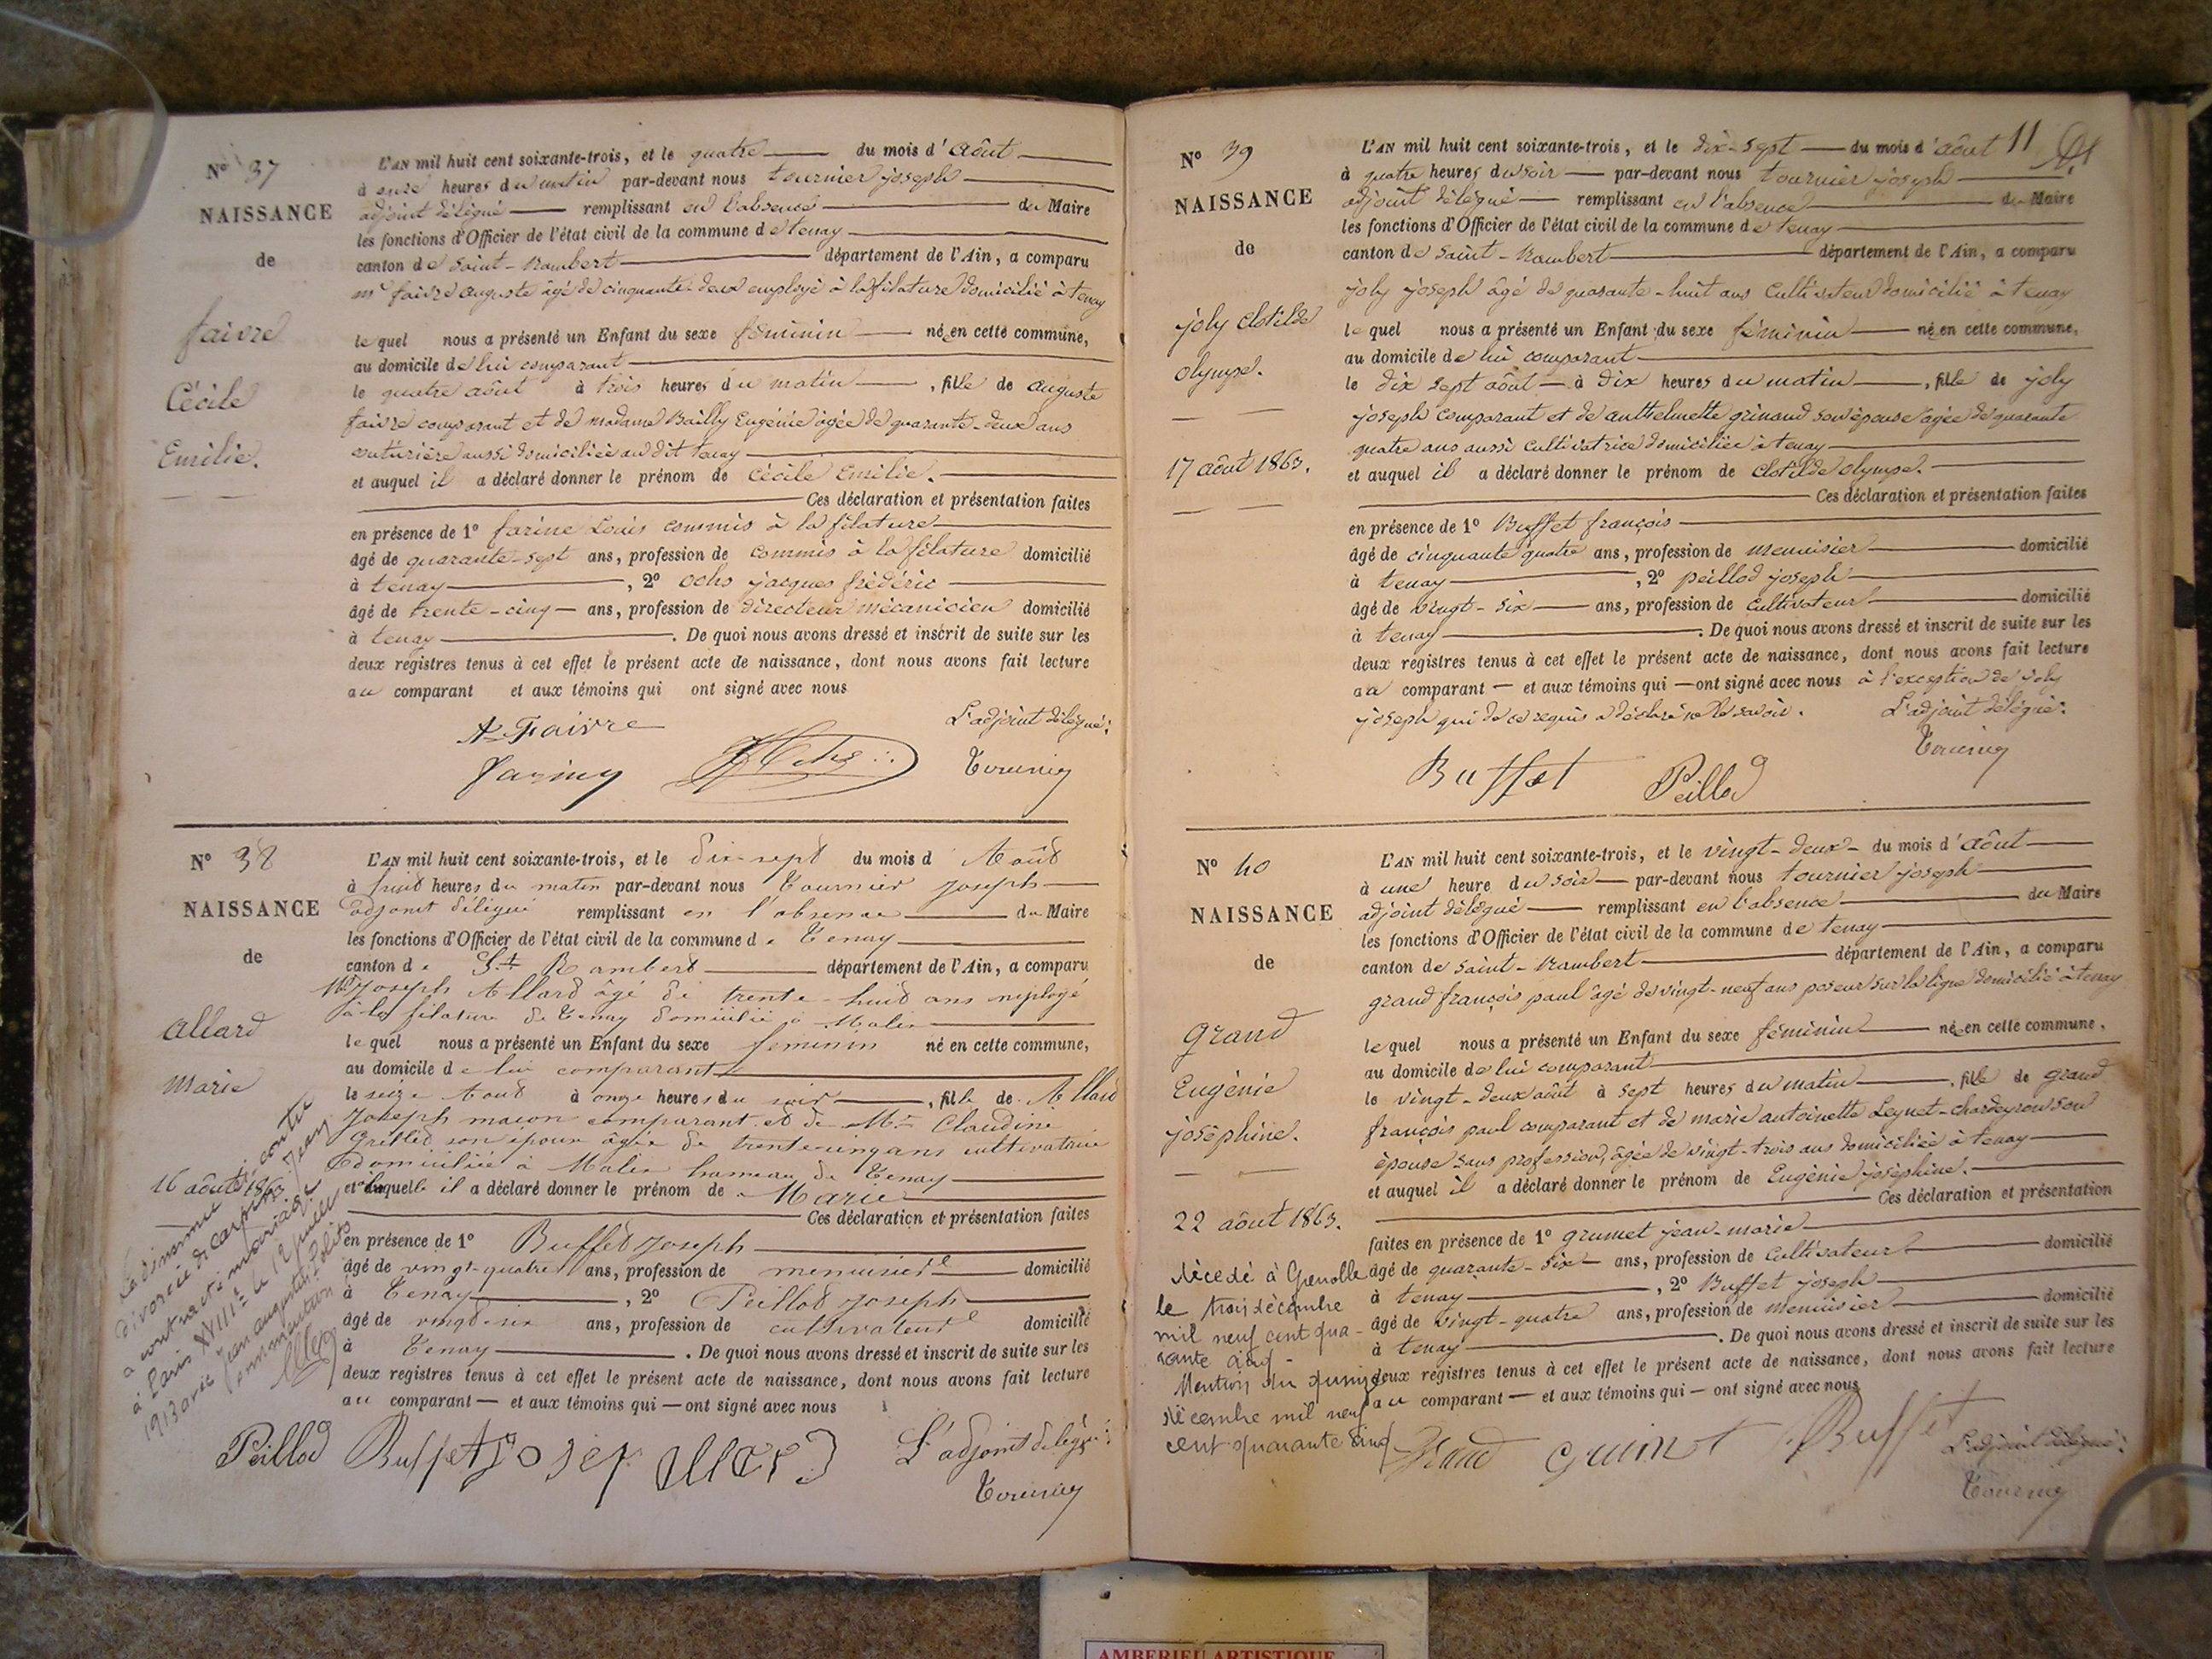 N° 37
NAISSANCE
de
faivre
Cécile
Emilie.
L'AN mil huit cent soixante-trois, et le quatre du mois d'août
à onze heures du matin par-devant nous tournier joseph
adjoint délégué remplissant en l'absence du Maire
les fonctions d'Officier de l'état civil de la commune de tenay
canton de saint-Rambert département de l'Ain, a comparu
mr faivre auguste âgé de cinquante-deux employé à la filature domicilié à tenay
lequel nous a présenté un Enfant du sexe féminin née en cette commune,
au domicile de lui comparant
le quatre août à trois heures du matin, fille de auguste
faivre comparant et de madame Bailly Eugénie âgée de quarante-deux ans
couturière aussi domiciliée au dit tenay
et auquel il a déclaré donner le prénom de Cécile Emilie.
Ces déclaration et présentation faites
en présence de 1° farine Louis commis à la filature
âgé de quarante-sept ans, profession de commis à la filature domicilié
à tenay, 2° ochs jacques frédéric
âgé de trente-cinq ans, profession de directeur mécanicien domicilié
à tenay. De quoi nous avons dressé et inscrit de suite sur les
deux registres tenus à cet effet le présent acte de naissance, dont nous avons fait lecture
au comparant et aux témoins qui ont signé avec nous
L'adjoint délégué:
A. Faivre
N° 38
NAISSANCE
de
allard
Marie
16 août 1863
L'AN mil huit cent soixante-trois, et le dix-sept du mois d Août
à huit heures du matin par-devant nous Tournier Joseph
adjoint délégué remplissant en l'absence du Maire
les fonctions d'Officier de l'état civil de la commune de Tenay
canton de St Rambert département de l'Ain, a comparu
Joseph Allard âgé de trente-huit ans employé
à la filature de Tenay domicilié à Malix
lequel nous a présenté un Enfant du sexe feminin né en cette commune,
au domicile de lui comparant
le seize Août à onze heures du soir, fille de Allard
Joseph maçon comparant et de Claudine
Grillet son épouse âgée de trente-cinq ans cultivatrice
domiciliée à Malix hameau de Tenay
et à laquelle il a déclaré donner le prénom de Marie
Ces déclaration et présentation faites
en présence de 1° Buffet Joseph
âgé de vingt-quatre ans, profession de menuisier domicilié
à Tenay, 2° Peillod Joseph
âgé de vingt six ans, profession de cultivateur domicilié
à Tenay. De quoi nous avons dressé et inscrit de suite sur les
deux registres tenus à cet effet le présent acte de naissance, dont nous avons fait lecture
au comparant — et aux témoins qui — ont signé avec nous
Peillod Buffet josep allard L'adjoint délégué:
La dénommée ci contre
divorcée de Jean
a contracté mariage
à Paris XVIIIe le 12 juillet
1913 avec Jean augustin
N° 39
NAISSANCE
de
joly Clotilde
olympe.
17 août 1863.
11
L'AN mil huit cent soixante-trois, et le dix-sept du mois d'août
à quatre heures du soir par-devant nous tournier joseph
adjoint délégué remplissant en l'absence du Maire
les fonctions d'Officier de l'état civil de la commune de tenay
canton de saint-Rambert département de l'Ain, a comparu
joly joseph âgé de quarante-huit ans Cultivateur domicilié à tenay
lequel nous a présenté un Enfant du sexe féminin née en cette commune,
au domicile de lui comparant
le dix sept août à dix heures du matin, fille de joly
joseph comparant et de anthelmette grinand son épouse âgée de quarante
quatre ans aussi cultivatrice domiciliée à tenay
et auquel il a déclaré donner le prénom de clotilde olympe.
Ces déclaration et présentation faites
en présence de 1° Buffet françois
âgé de cinquante quatre ans, profession de menuisier domicilié
à tenay, 2° peillod joseph
âgé de vingt-six ans, profession de cultivateur domicilié
à tenay. De quoi nous avons dressé et inscrit de suite sur les
deux registres tenus à cet effet le présent acte de naissance, dont nous avons fait lecture
au comparant — et aux témoins qui — ont signé avec nous à l'exception de joly
joseph qui de ce requis a déclaré ne le savoir. L'adjoint délégué:
Buffet Peillod
N° 40
NAISSANCE
de
grand
Eugénie
joséphine.
22 août 1863.
L'AN mil huit cent soixante-trois, et le vingt-deux du mois d'août
à une heure du soir par-devant nous tournier joseph
adjoint délégué remplissant en l'absence du Maire
les fonctions d'Officier de l'état civil de la commune de tenay
canton de saint-Rambert département de l'Ain, a comparu
grand françois paul âgé de vingt-neuf ans poseur sur la ligne domicilié à tenay
lequel nous a présenté un Enfant du sexe féminin née en cette commune,
au domicile de lui comparant
le vingt-deux août à sept heures du matin, fille de grand
françois paul comparant et de marie antoinette Leynet-chardeyron son
épouse sans profession, âgée de vingt-trois ans domiciliée à tenay
et auquel il a déclaré donner le prénom de Eugénie joséphine.
Ces déclaration et présentation
faites en présence de 1° grumet jean-marie
âgé de quarante-six ans, profession de cultivateur domicilié
à tenay, 2° Buffet joseph
âgé de vingt-quatre ans, profession de menuisier domicilié
à tenay. De quoi nous avons dressé et inscrit de suite sur les
deux registres tenus à cet effet le présent acte de naissance, dont nous avons fait lecture
au comparant — et aux témoins qui — ont signé avec nous
Décédé à Grenoble
le trois décembre
mil neuf cent qua-
rante cinq -
Mention du quinze
décembre mil neuf
cent quarante cinq
Grand Buffet L'adjoint délégué:
AMBERIEU ARTISTIQUE